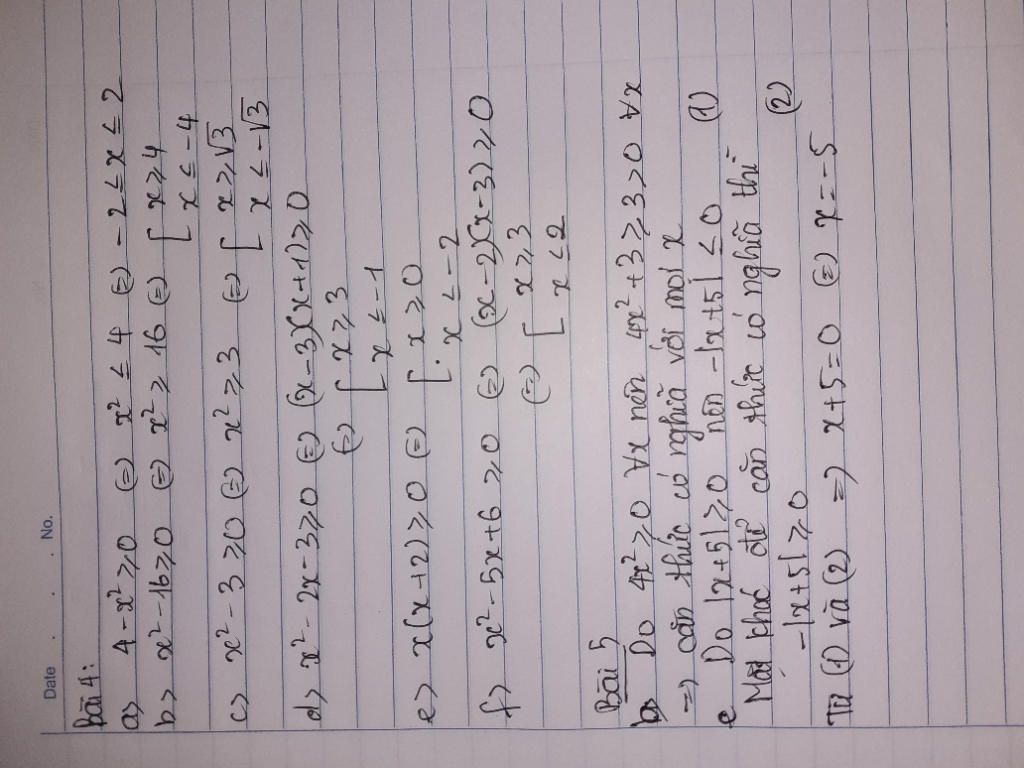 Date . . . No.
Bài 4:
a> 4 - x² ≥ 0 (=) x² ≤ 4 (=) -2 ≤ x ≤ 2
b> x² - 16 ≥ 0 (=) x² ≥ 16 (=) [ x ≥ 4
x ≤ -4
c> x² - 3 ≥ 0 (=) x² ≥ 3 (=) [ x ≥ √3
x ≤ -√3
d> x² - 2x - 3 ≥ 0 (=) (x - 3)(x + 1) ≥ 0
(=) [ x ≥ 3
x ≤ -1
e> x(x + 2) ≥ 0 (=) [ x ≥ 0
x ≤ -2
f> x² - 5x + 6 ≥ 0 (=) (x - 2)(x - 3) ≥ 0
(=) [ x ≥ 3
x ≤ 2
Bài 5
b> Do 4x² ≥ 0 ∀x nên 4x² + 3 ≥ 3 > 0 ∀x
=> căn thức có nghĩa với mọi x
e Do |x + 5| ≥ 0 nên -|x + 5| ≤ 0 (1)
Mặt khác để căn thức có nghĩa thì
-|x + 5| ≥ 0 (2)
Từ (1) và (2) => x + 5 = 0 (=) x = -5